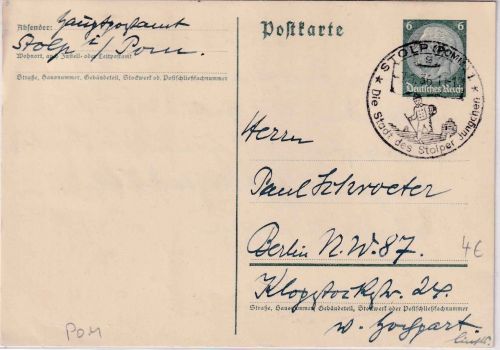 Absender: Hauptpostamt
Stolp i/Pom.
Wohnort, auch Zustell- oder Leitpostamt
Straße, Hausnummer, Gebäudeteil, Stockwerk od. Postschließfachnummer
Postkarte
6 6
Deutsches Reich
STOLP (POMM) 1
* Die Stadt des Stolper Jungchen *
Herrn
Paul Schroeter
Berlin N.W. 87.
Klopstockstr. 24.
Straße, Hausnummer, Gebäudeteil, Stockwerk oder Postschließfachnummer
4€
POM